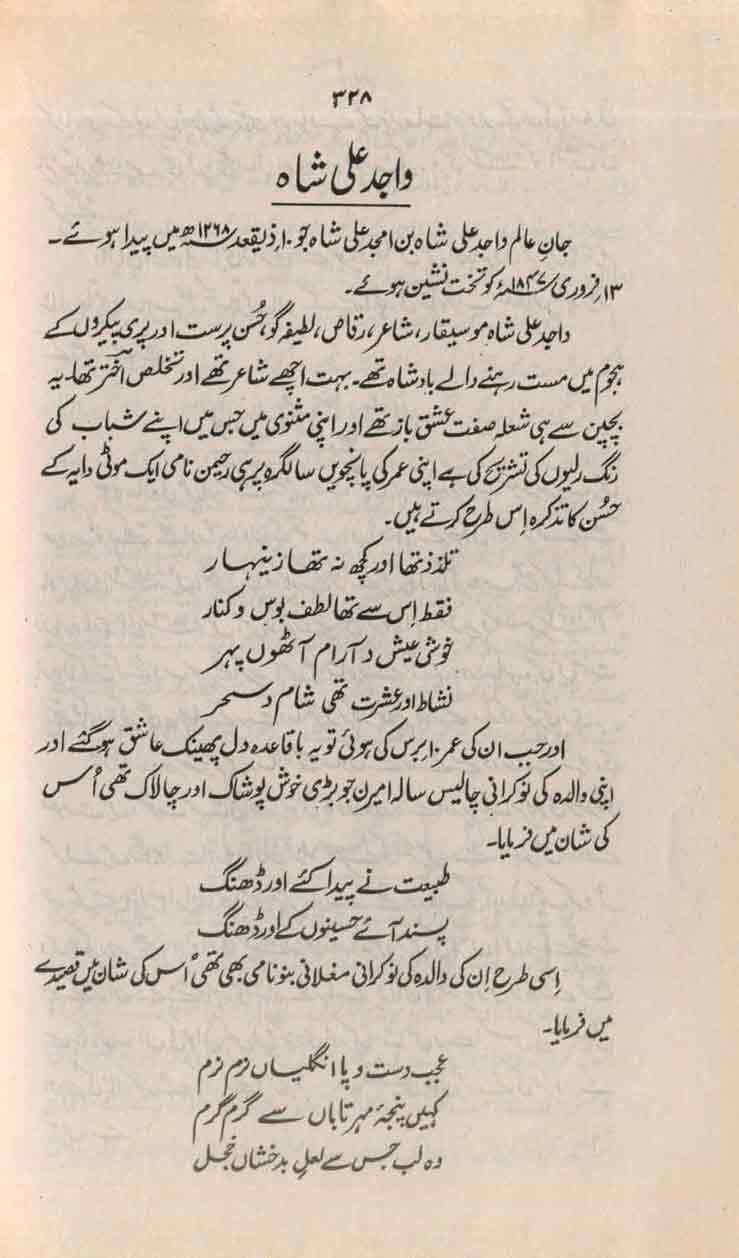 ۳۲۸
واجد علی شاہ
جانِ عالم واجد علی شاہ بن امجد علی شاہ جو ۱۰؍ ذیقعد ۱۲۶۸ھ میں پیدا ہوئے۔
۱۳؍ فروری ۱۸۴۷ء کو تخت نشین ہوئے۔
واجد علی شاہ موسیقار، شاعر، رقاص، لطیفہ گو، حُسن پرست اور پری پیکروں کے
ہجوم میں مست رہنے والے بادشاہ تھے۔ بہت اچھے شاعر تھے اور تخلص اخترؔ تھا۔ یہ
بچپن سے ہی شعلہ صفت عشق باز تھے اور اپنی مثنوی میں جس میں اپنے شباب کی
رنگ رلیوں کی تشریح کی ہے اپنی عمر کی پانچویں سالگرہ پر ہی رحیمن نامی ایک موٹی دایہ کے
حُسن کا تذکرہ اِس طرح کرتے ہیں۔
تلذذ تھا اور کچھ نہ تھا زینہار
فقط اِس سے تھا لطف بوس و کنار
خوشی عیش و آرام آٹھوں پہر
نشاط اور عشرت تھی شام و سحر
اور جب ان کی عمر ۱۰ برس کی ہوئی تو یہ باقاعدہ دل پھینک عاشق ہو گئے اور
اپنی والدہ کی نوکرانی چالیس سالہ امیرن جو بڑی خوش پوشاک اور چالاک تھی اُس
کی شان میں فرمایا۔
طبیعت نے پیدا کئے اور ڈھنگ
پسند آئے حسینوں کے اور ڈھنگ
اِسی طرح اِن کی والدہ کی نوکرانی مغلانی بنو نامی بھی تھی اُس کی شان میں قصیدے
میں فرمایا۔
عجب دست و پا انگلیاں نرم نرم
کہیں پنجۂ مہر تاباں سے گرم گرم
وہ لب جس سے لعلِ بدخشاں خجل